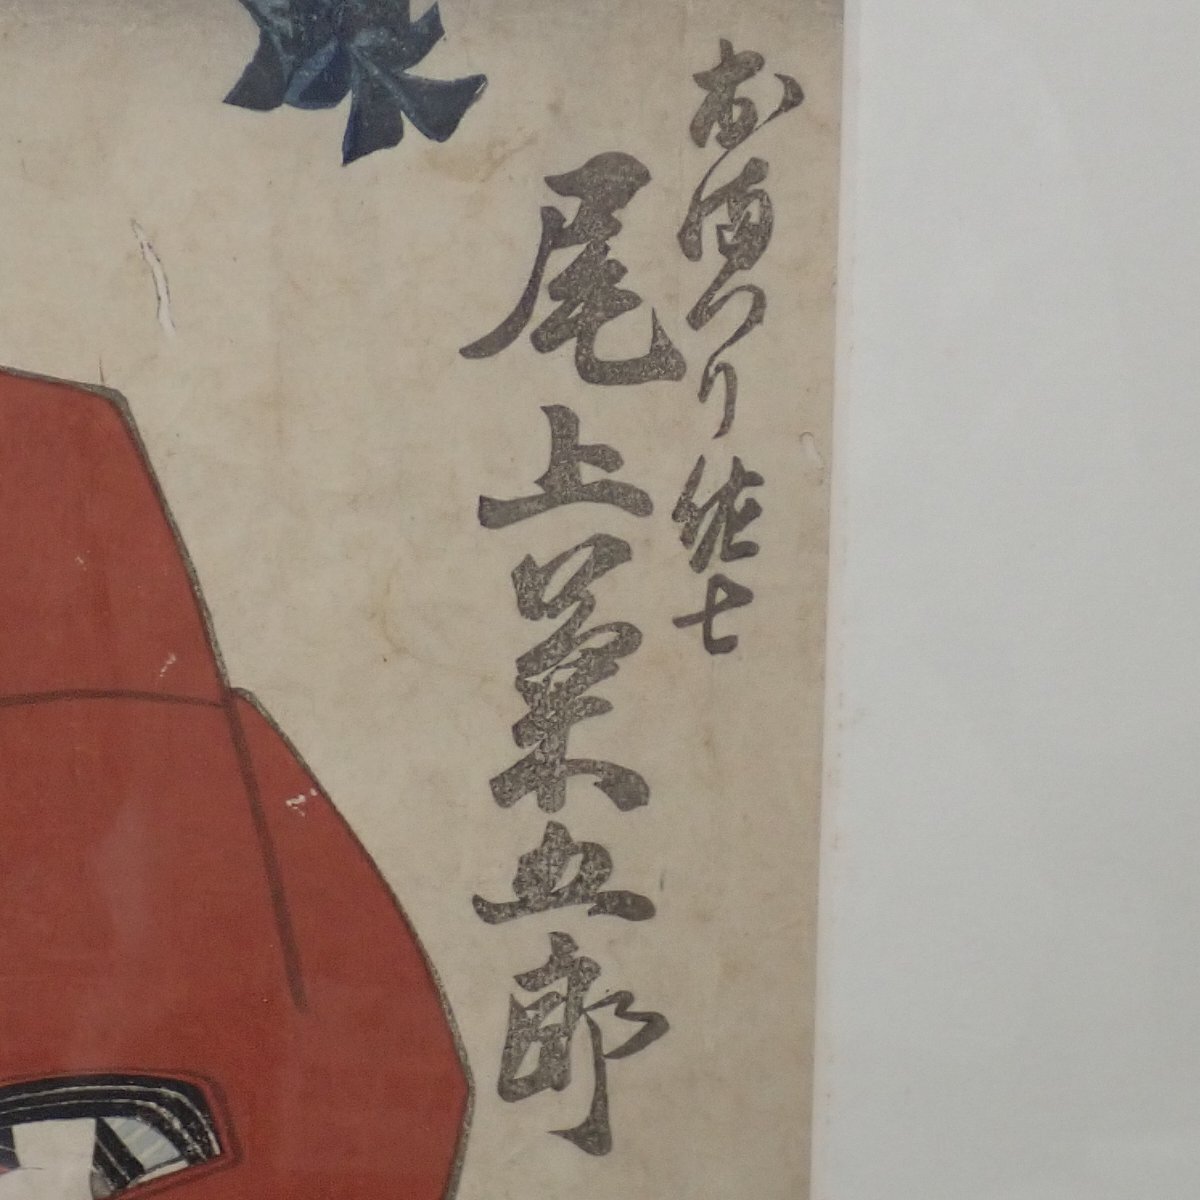 お酒つり佐七
尾上菊五郎